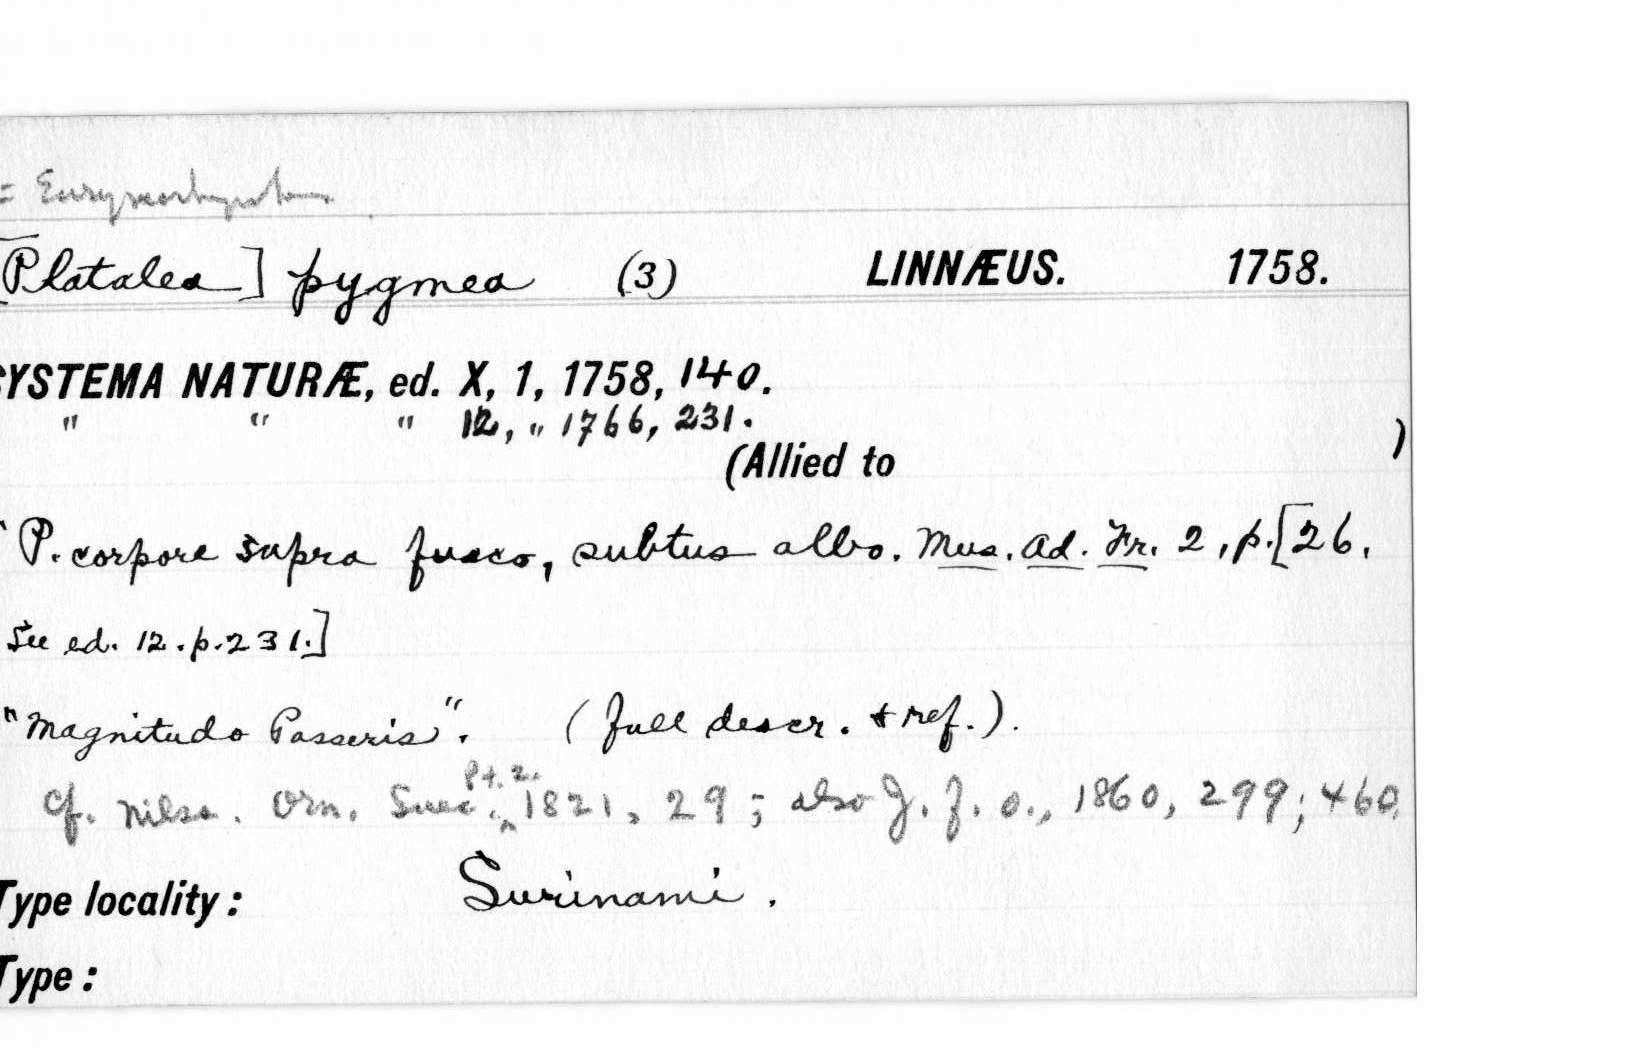 = Eurynorhynchus
[Platalea] pygmea (3) LINNÆUS. 1758.
SYSTEMA NATURÆ, ed. X, 1, 1758, 140.
" " " 12, " 1766, 231.
(Allied to )
"P. corpore supra fusco, subtus albo. Mus. Ad. Fr. 2, p. [26.
See ed. 12. p. 231.]
"Magnitudo Passeris". (full descr. + ref.).
cf. Nilss. Orn. Suec. Pt. 2. 1821, 29; also J. f. O., 1860, 299; + 460.
Type locality: Surinami.
Type: